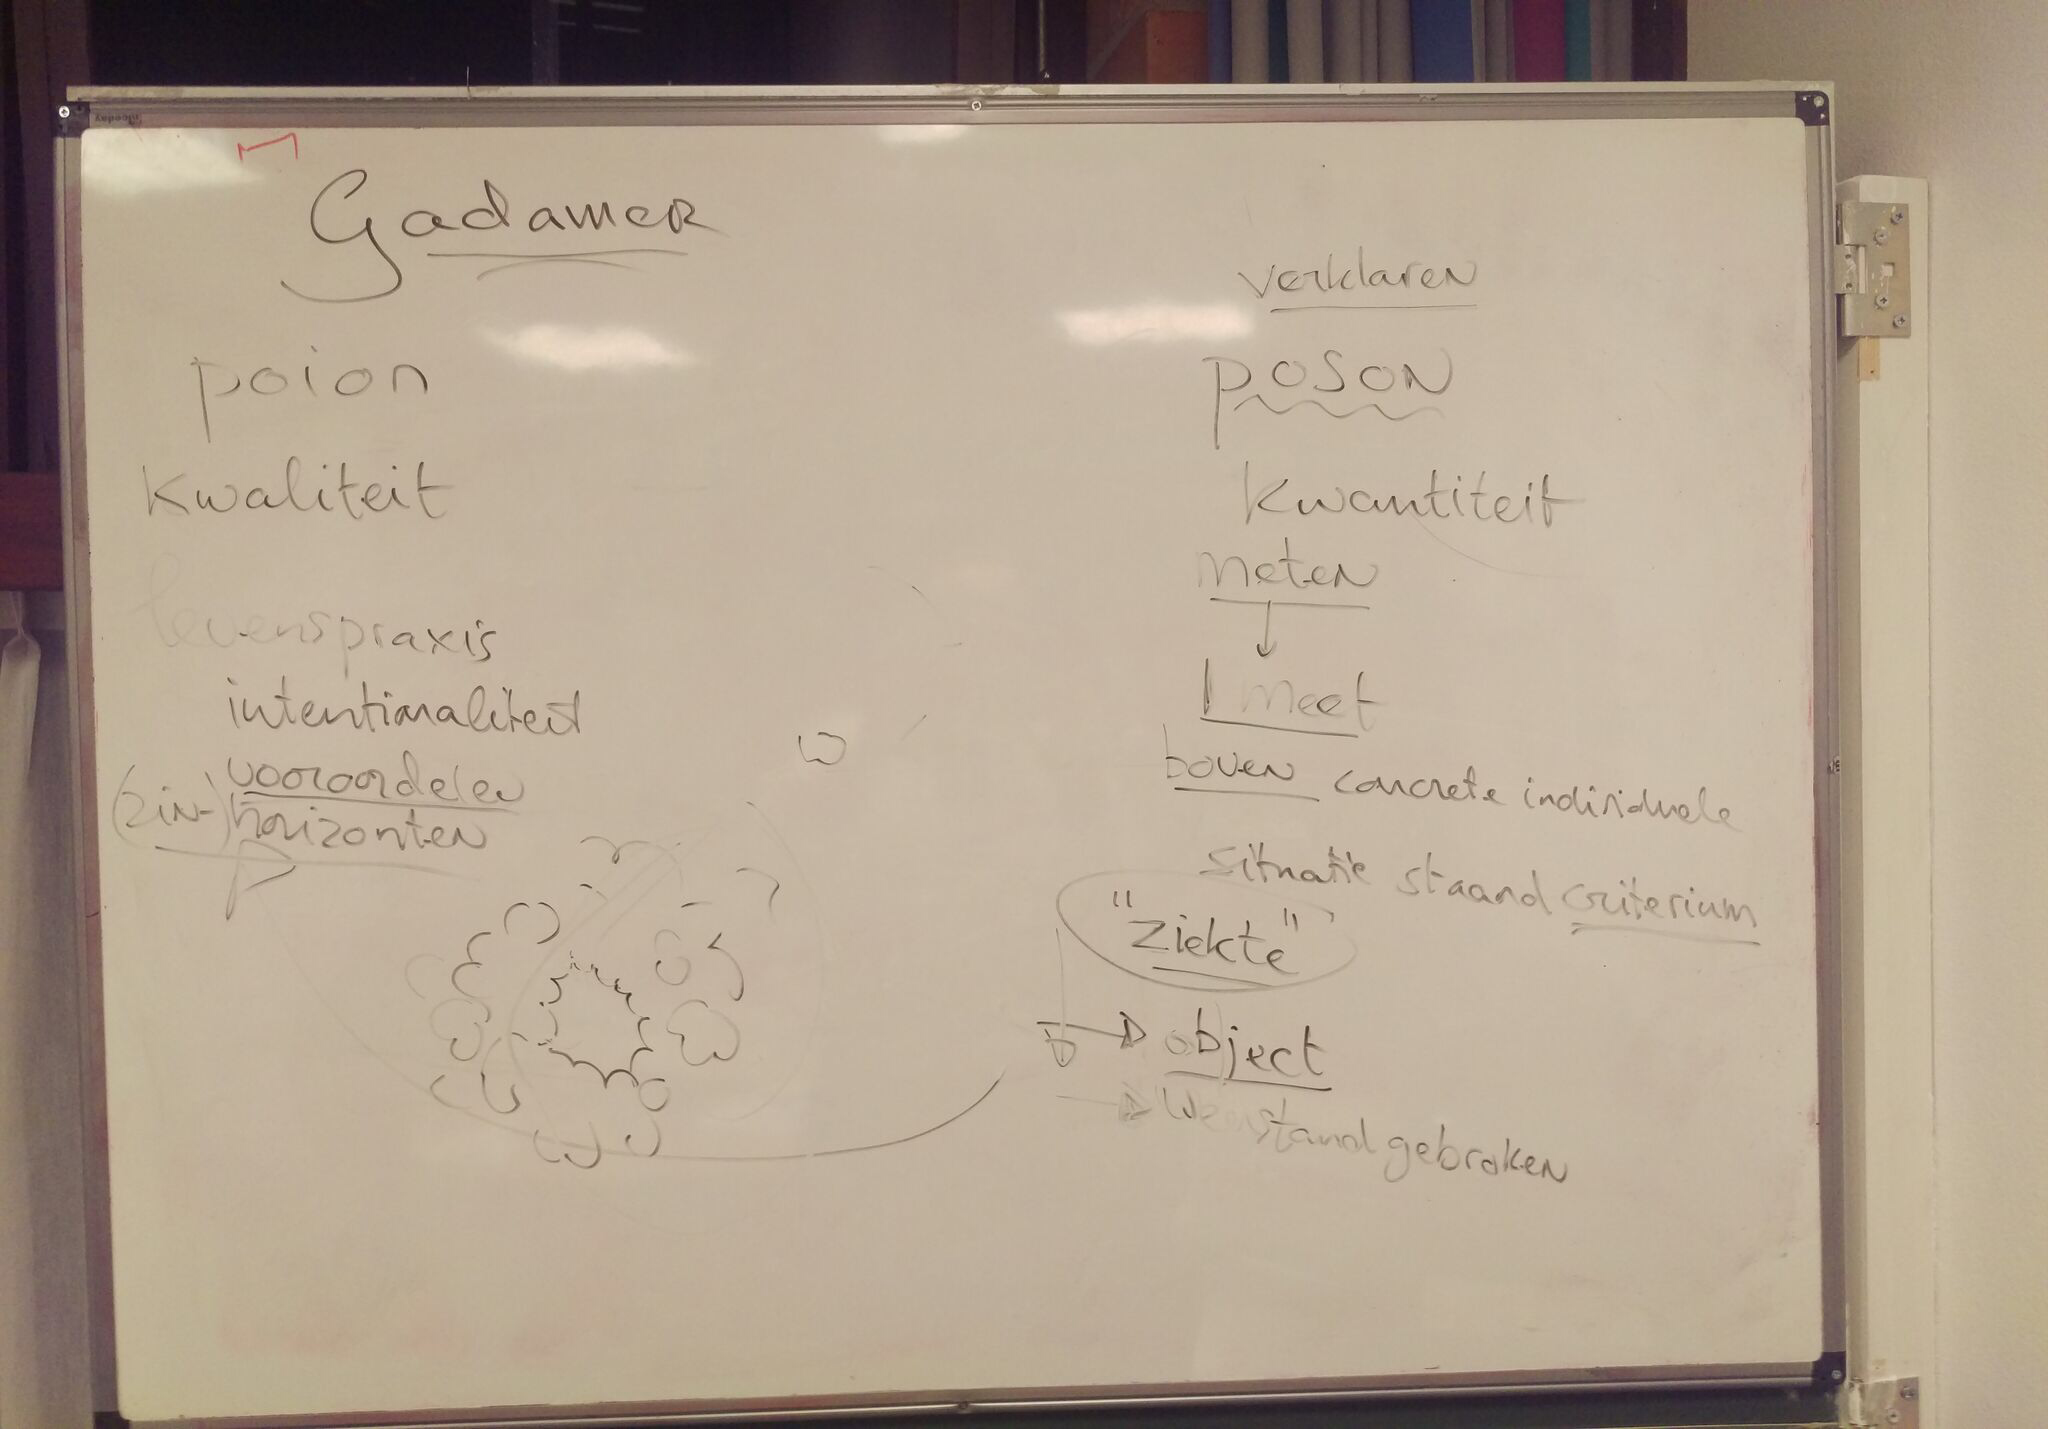 Gadamer
poion
kwaliteit
levenspraxis
intentionaliteit
vooroordelen
(zin-) horizonten
verklaren
poson
kwantiteit
meten
meet
boven concrete individuele
situatie staand criterium
"ziekte"
object
weerstand gebroken